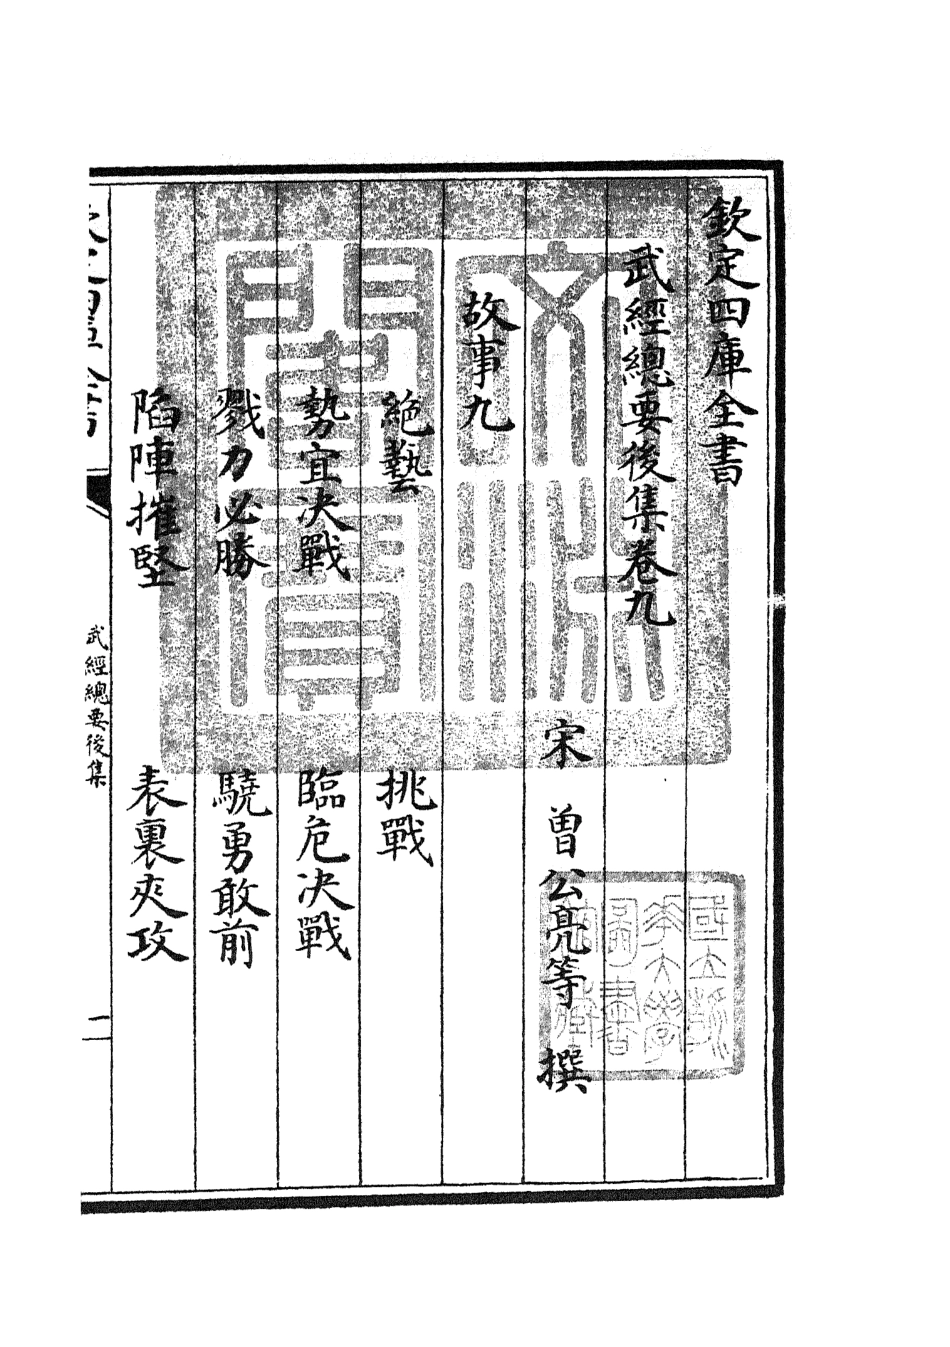 欽定四庫全書
武經總要後集卷九
宋 曾公亮等 撰
故事九
絶藝 挑戰
勢宜決戰 臨危决戰
戮力必勝 驍勇敢前
陷陣摧堅 表裏夾攻
武經總要後集
一
文淵閣寶